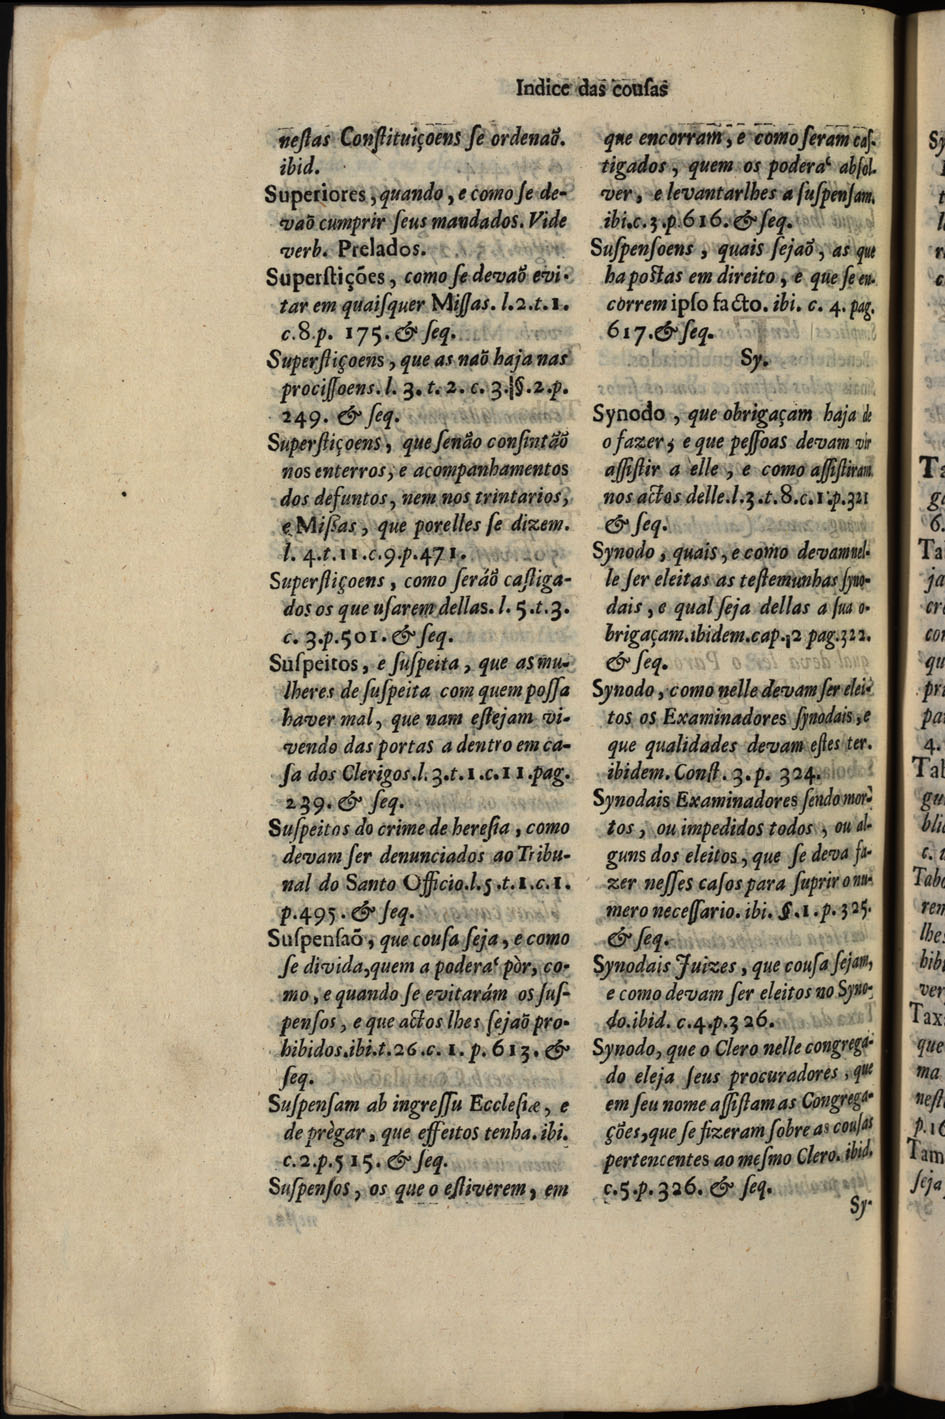 Indice das couſas
neſtas Conſtituiçoens ſe ordenaõ.
ibid.
Superiores, quando, e como ſe de-
vaõ cumprir ſeus mandados. Vide
verb. Prelados.
Superſtições, como ſe devaõ evi-
tar em quaiſquer Miſſas. l.2.t.1.
c.8.p. 175. & ſeq.
Superſtiçoens, que as naõ haja nas
prociſſoens. l. 3. t. 2. c. 3. §.2.p.
249. & ſeq.
Superſtiçoens, que ſenaõ conſintaõ
nos enterros, e acompanhamentos
dos defuntos, nem nos trintarios,
e Miſsas, que porelles ſe dizem.
l. 4.t.11.c.9.p.471.
Superſtiçoens, como ſeráõ caſtiga-
dos os que uſarem dellas. l. 5.t.3.
c. 3.p.501. & ſeq.
Suſpeitos, e ſuſpeita, que as mu-
lheres de ſuſpeita com quem poſſa
haver mal, que nam eſtejam vi-
vendo das portas a dentro em ca-
ſa dos Clerigos.l.3.t.1.c.11.pag.
239. & ſeq.
Suſpeitos do crime de hereſia, como
devam ſer denunciados ao Tribu-
nal do Santo Officio.l.5.t.1.c.1.
p.495. & ſeq.
Suſpenſaõ, que couſa ſeja, e como
ſe divida,quem a poderaʿ pòr, co-
mo, e quando ſe evitarám os ſuſ-
penſos, e que actos lhes ſejaõ pro-
hibidos.ibi.t.26.c. 1. p. 613. &
ſeq.
Suſpenſam ab ingreſſu Eccleſiæ, e
de prègar, que effeitos tenha. ibi.
c.2.p.515. & ſeq.
Suſpenſos, os que o eſtiverem, em
que encorram, e como ſeram caſ-
tigados, quem os poderaʿ abſol-
ver, e levantarlhes a ſuſpenſam.
ibi.c.3.p.616. & ſeq.
Suſpenſoens, quais ſejaõ, as que
ha poſtas em direito, e que ſe en-
correm ipſo facto. ibi. c. 4. pag.
617. & ſeq.
Sy.
Synodo, que obrigaçam haja de
o fazer, e que peſſoas devam vir
aſſiſtir a elle, e como aſſiſtiram
nos actos delle.l.3.t.8.c.1.p.321
& ſeq.
Synodo, quais, e como devam nel-
le ſer eleitas as teſtemunhas ſyno-
dais, e qual ſeja dellas a ſua o-
brigaçam.ibidem.cap.2 pag.322.
& ſeq.
Synodo, como nelle devam ſer elei-
tos os Examinadores ſynodais, e
que qualidades devam eſtes ter.
ibidem. Conſt. 3. p. 324.
Synodais Examinadores ſendo mor-
tos, ou impedidos todos, ou al-
guns dos eleitos, que ſe deva fa-
zer neſſes caſos para ſuprir o nu-
mero neceſſario. ibi. §.1.p.325.
& ſeq.
Synodais Juizes, que couſa ſejam,
e como devam ſer eleitos no Syno-
do.ibid. c.4.p.326.
Synodo, que o Clero nelle congrega-
do eleja ſeus procuradores, que
em ſeu nome aſſiſtam as Congrega-
ções,que ſe fizeram ſobre as couſas
pertencentes ao meſmo Clero. ibid.
c.5.p.326. & ſeq.
Sy-